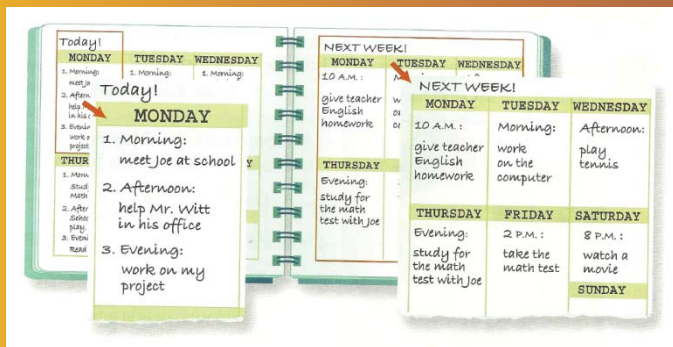 Today!
MONDAY TUESDAY WEDNESDAY
1. Morning: 1. Morning: 1. Morning:
meet Jo
2. Aftern
help
in his
3. Evenin
work o
project
THUR
1. Morn
Stud
Math
2. After
Schoo
play
3. Eveni
Read
Today!
MONDAY
1. Morning:
meet Joe at school
2. Afternoon:
help Mr. Witt
in his office
3. Evening:
work on my
project
NEXT WEEK!
MONDAY TUESDAY WEDNESDAY
10 A.M.:
give teacher
English
homework
THURSDAY
Evening:
study for
the math
test with Joe
NEXT WEEK!
MONDAY TUESDAY WEDNESDAY
10 A.M.: Morning: Afternoon:
give teacher work play
English on the tennis
homework computer
THURSDAY FRIDAY SATURDAY
Evening: 2 P.M.: 8 P.M.:
study for take the watch a
the math math test movie
test with Joe
SUNDAY